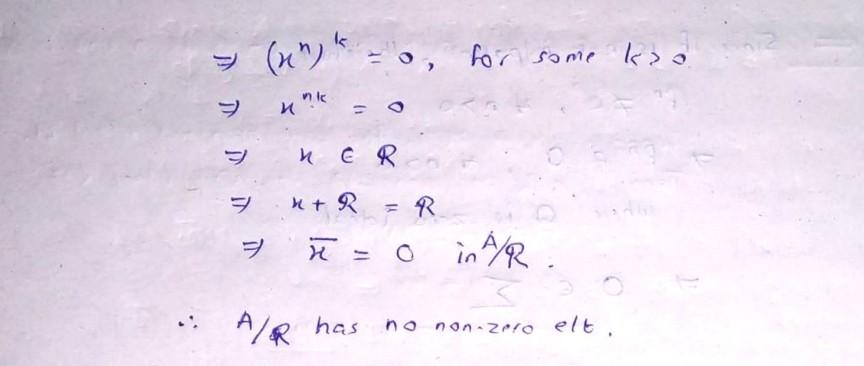 ⇒ (x^n)^k = 0, for some k>0
⇒ x^{nk} = 0
⇒ x ∈ R
⇒ x + R = R
⇒ x̄ = 0 in A/R.
∴ A/R has no non-zero elt.